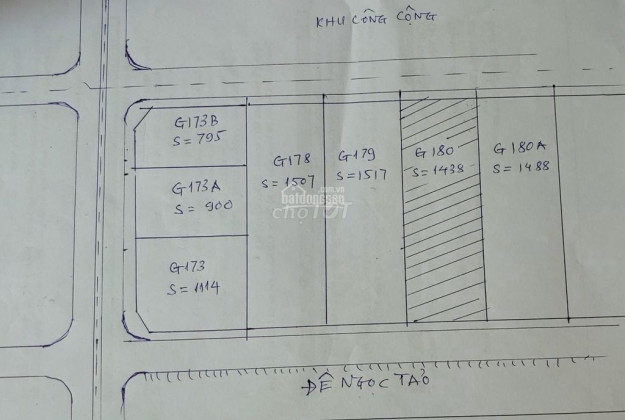 KHU CÔNG CỘNG
G173B
S = 795
G173A
S = 900
G173
S = 1114
G178
S = 1507
G179
S = 1517
G180
S = 1438
G180A
S = 1488
batdongsan
.com.vn
choTOT
ĐÊ NGỌC TẢO